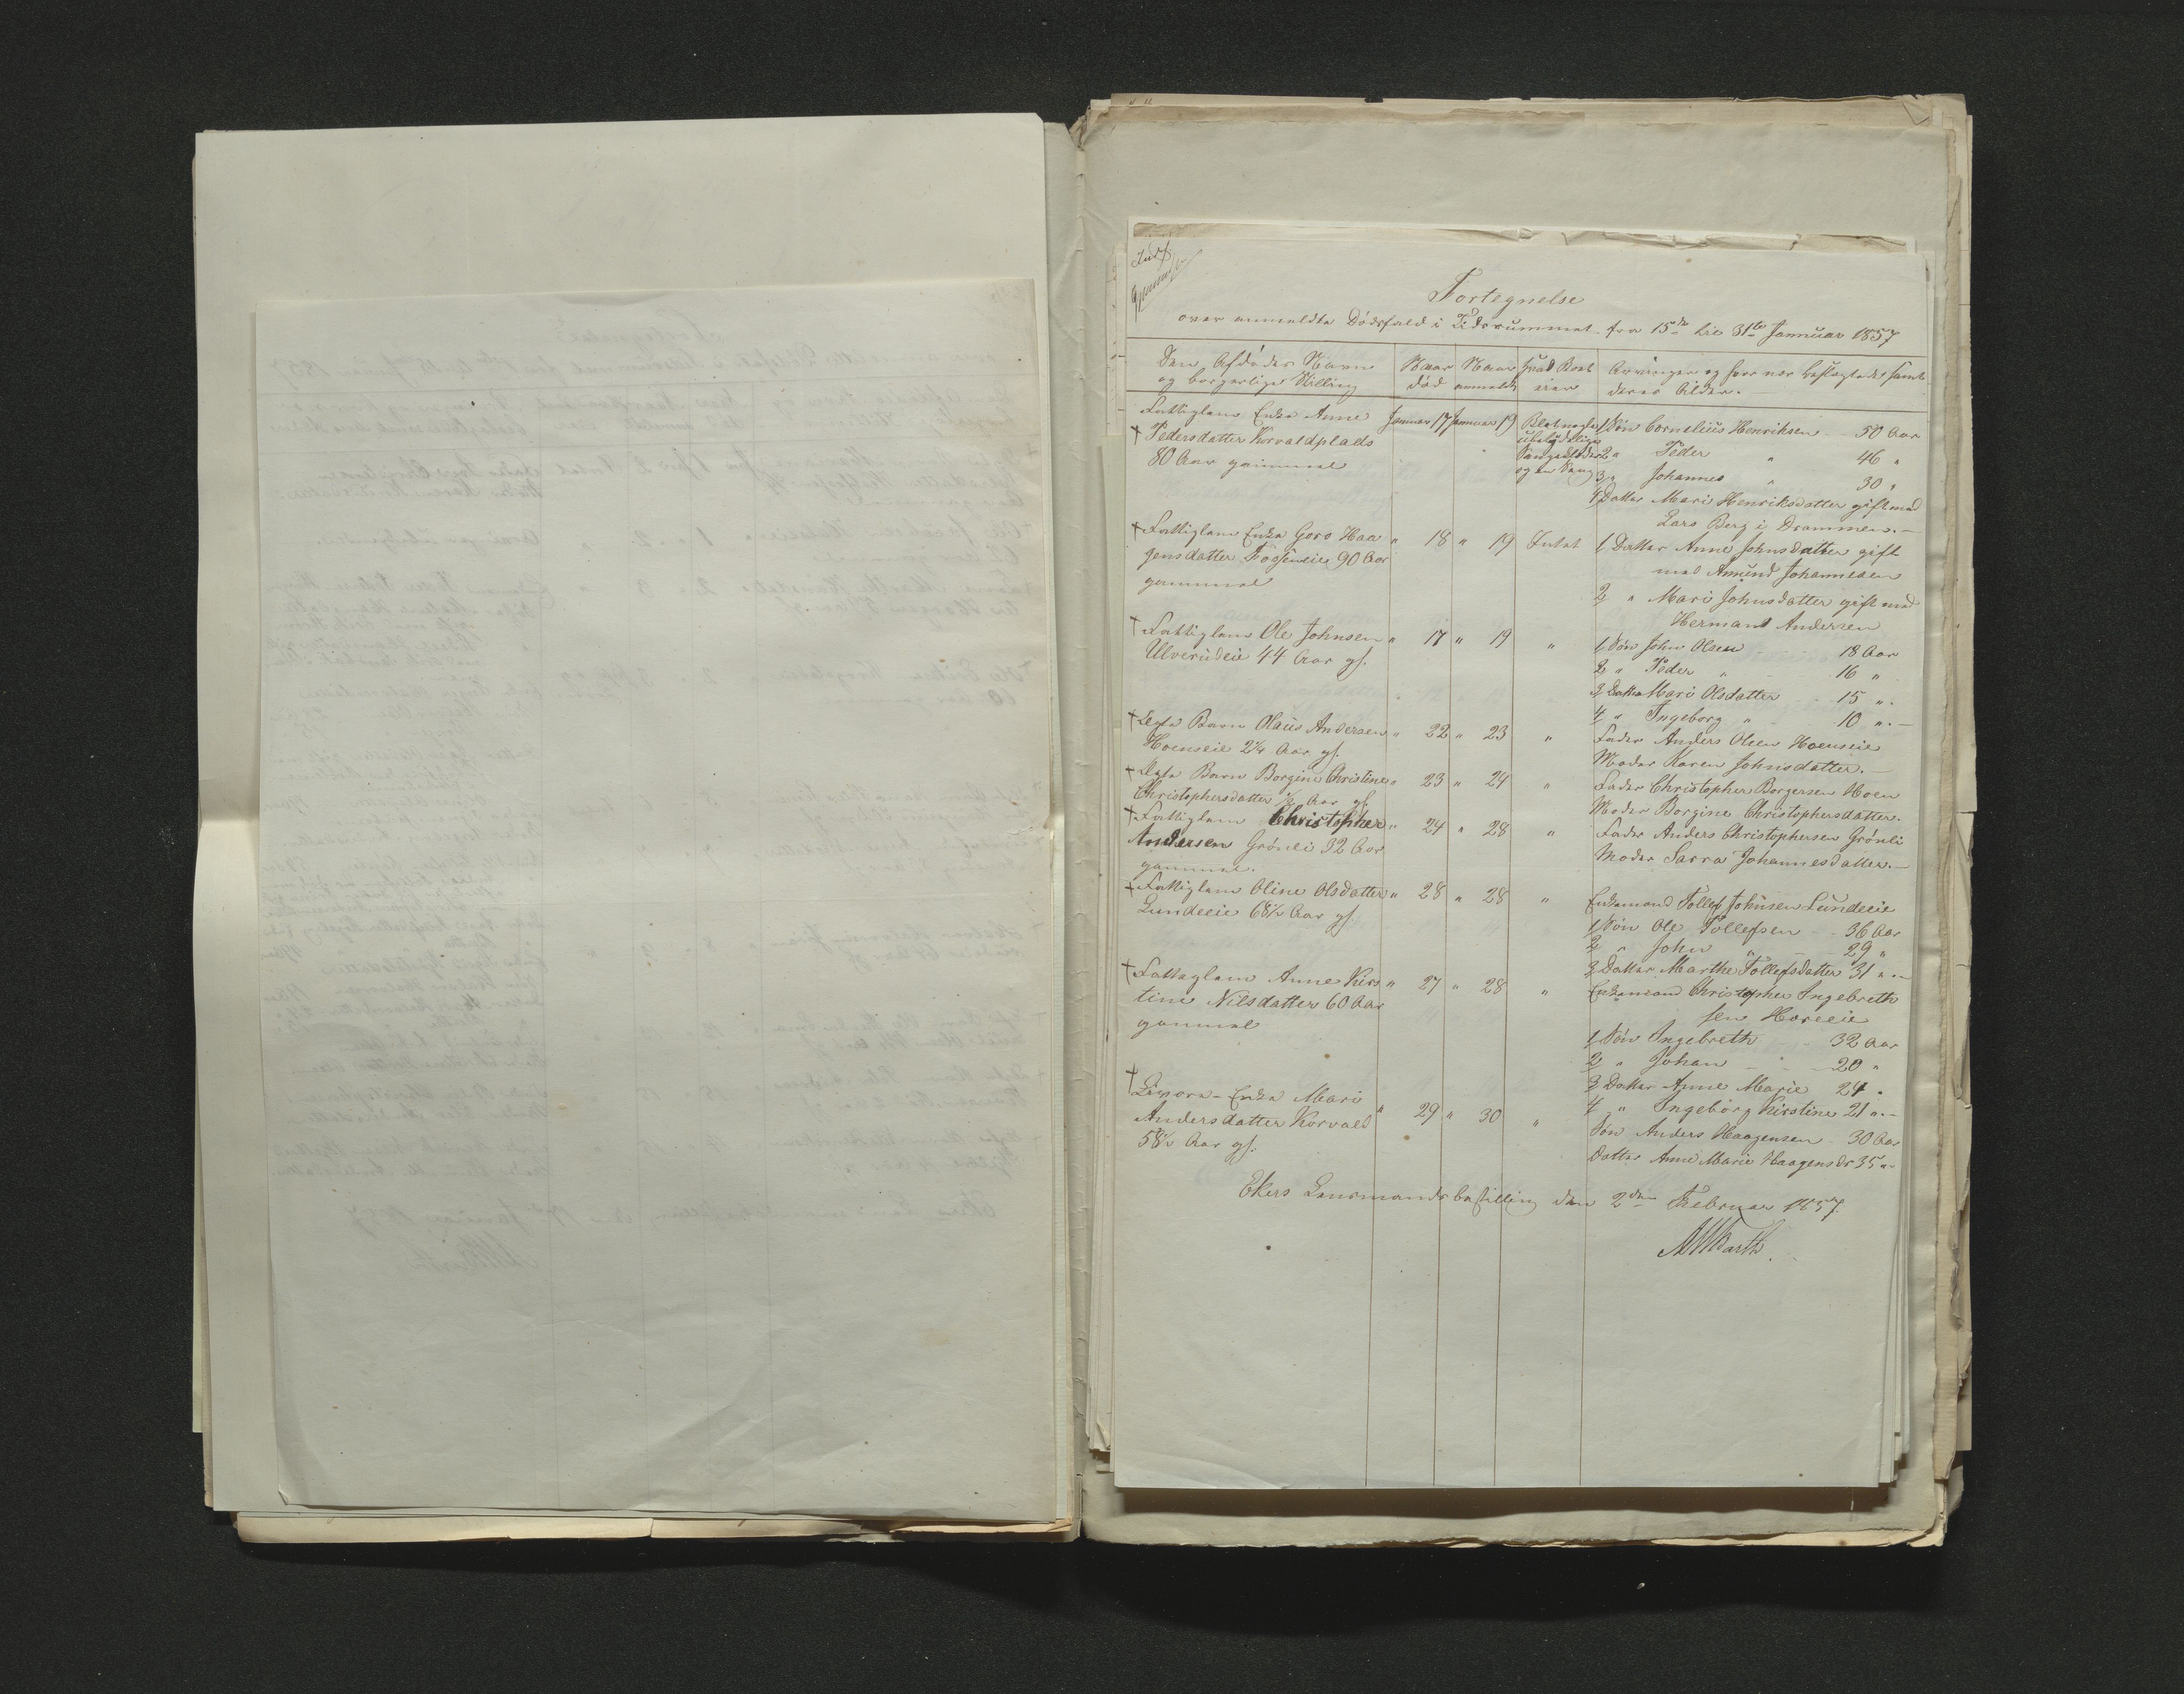 Fortegnelse
over anmeldte Dödsfald i Tidsrummet fra 15de til 31te Januar 1857
Den Afdödes Navn og borgerlige Stilling
Naar död
Naar anmeldt
Hvad Boet eier
Arvinger og hvor nær beslægtede samt deres Alder.
† Fattiglem Enke Anne
Pedersdatter Korvaldplads
80 Aar gammel
Januar 17 Januar 19
ubetydelige
og en Seng
1 Sön Cornelius Henriksen 50 Aar
2 " Peder " 46 "
3 " Johannes " 30 "
4 Datter Mari Henriksdatter gift med
Lars Berg i Drammen.
† Fattiglem Enke Goro Haa
gensdatter 90 Aar
gammel
" 18 " 19 Intet
1 Datter Anne Johnsdatter gift
med Amund Johannesen
2 " Mari Johnsdatter gift med
Herman Andersen
† Fattiglem Ole Johnsen
Ulverudeie 44 Aar gl.
" 17 " 19 "
1 Sön John Olsen 18 Aar
2 " Peder " 16 "
3 Datter Mari Olsdatter 15 "
4 " Ingeborg " 10 "
† Ægte Barn Olaus Andersen
Hoenseie 2¼ Aar gl.
" 22 " 23 "
Fader Anders Olsen Hoenseie
Moder Karen Johnsdatter.
† Ægte Barn Borgine Christine
Christophersdatter ½ Aar gl.
" 23 " 24 "
Fader Christopher Borgersen Hoen
Moder Borgine Christophersdatter.
† Fattiglem Christopher
Andersen Grönli 32 Aar
gammel.
" 24 " 28 "
Fader Anders Christophersen Grönli
Moder Sarra Johannesdatter.
† Fattiglem Oline Olsdatter
Lundeeie 68½ Aar gl.
" 28 " 28 "
Enkemand Tollef Johnsen Lundeeie
1 Sön Ole Tollefsen 36 Aar
2 " John " 29 "
3 Datter Marthe Tollefsdatter 31 "
† Fattiglem Anne Kirs
tine Nilsdatter 60 Aar
gammel
" 27 " 28 "
Enkemand Christopher Ingebreth
sen Horeeie
1 Sön Ingebreth 32 Aar
2 " Johan 20 "
3 Datter Anne Marie 24 "
4 " Ingeborg Kirstine 21 "
† Enke Mari
Andersdatter Korvald
58½ Aar gl.
" 29 " 30 "
Sön Anders Haagensen 30 Aar
Datter Anne Marie Haagensdr 35 "
Ekers Lensmandsbestilling den 2den Februar 1857.
Barth.